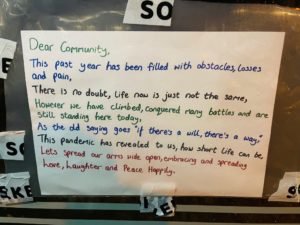 SO
Dear Community,
This past year has been filled with obstacles, losses
and pain,
There is no doubt, life now is just not the same,
However we have climbed, conquered many battles and are
still standing here today,
As the old saying goes "if there's a will, there's a way,"
This pandemic has revealed to us, how short life can be,
Lets spread our arms wide open, embracing and spreading
Love, Laughter and Peace Happily.